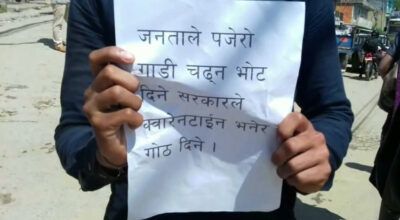 जनताले पजेरो
गाडी चढ्न भोट
दिने सरकारले
क्वारेनटाईन भनेर
गोठ दिने ।